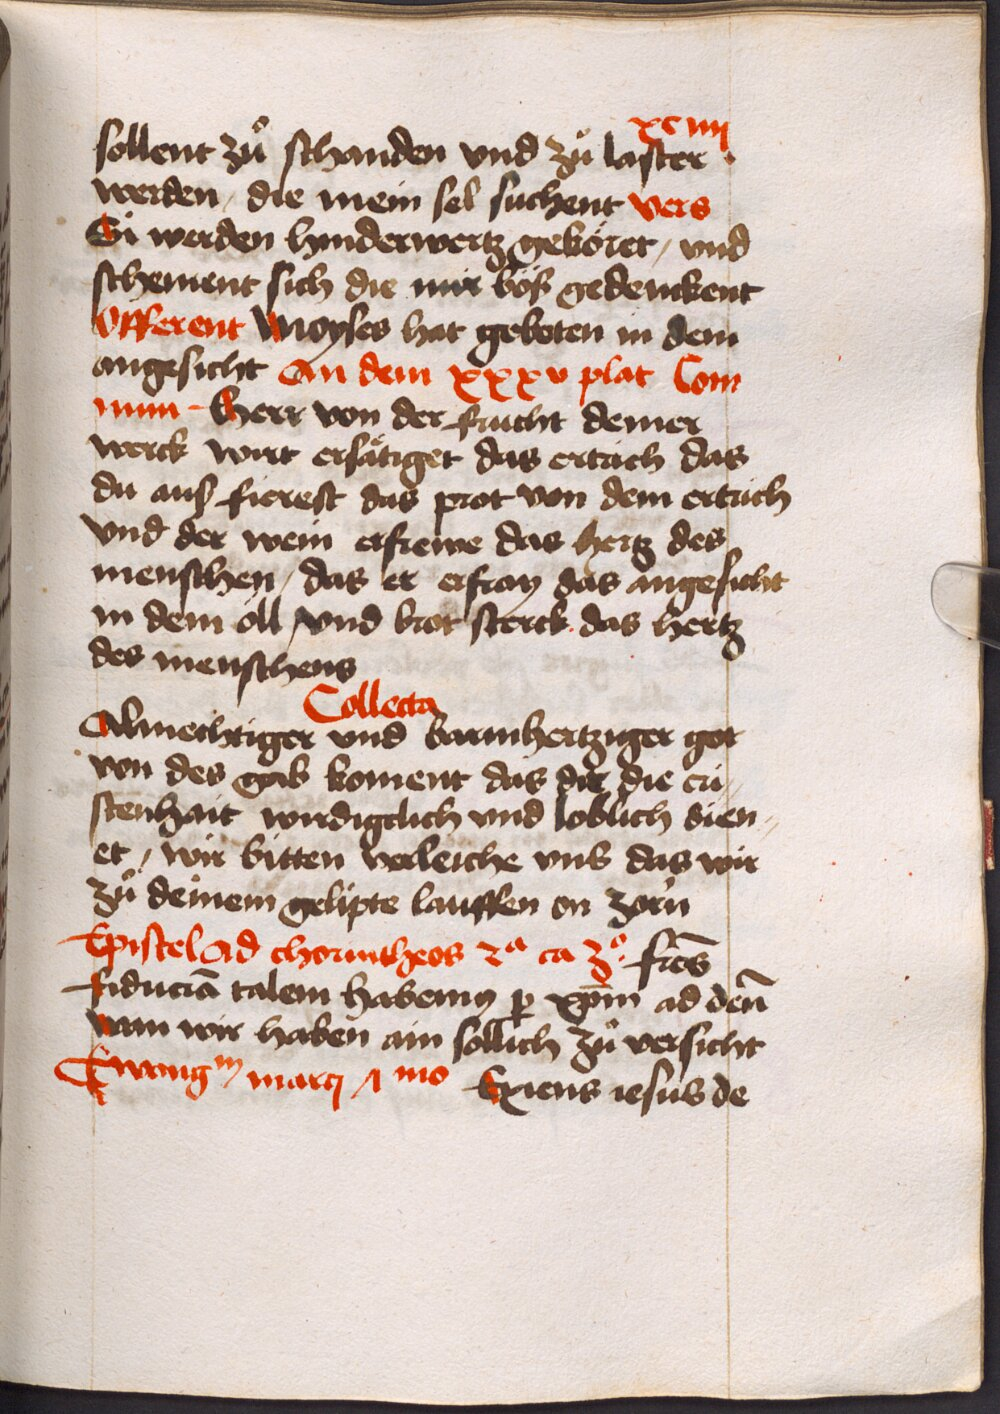 xciiij
sollent zuͦ schanden vnd zuͦ laster
werden / die mein sel suchent vers
Si werden hynderwertz geköret / vnd
schement sich die mir böß gedenckent
Offerent Moyses hat gebotten in dem
angesicht An dem xxxv plat Com
mun Herr von der frucht deiner
werck wirt ersätiget das ertrich das
du auß fierest das prot von dem ertrich
vnd der wein erfrewe das hertz des
menschen / das er erfray das angesicht
in dem öll / vnd brot sterck das hertz
des menschens
Collecta
Almechtiger vnd barmhertziger got
von des gab koment das dir die cri
stenhait wirdigclich vnd loblich dien
et / wir bitten verleiche vnß das wir
zuͦ deinem gelipte lauffen on zorn
Epistel Ad chorintheos 2ᵃ ca 3ͦ fr̄es
fiduciā talem habemꝰ ꝑ xp̄m ad deū
wan wir haben ain söllich zuͦ versicht
Ewangᵐ marcj 1 mo Exiens iesus de